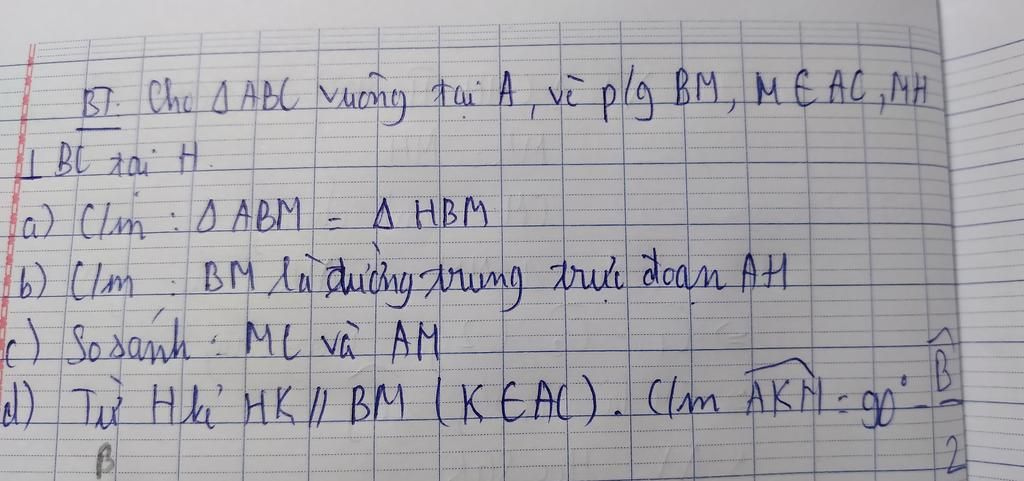 BT. Cho Δ ABC vuông tại A, vẽ p/g BM, M ∈ AC, MH
⊥ BC tại H.
a) C/m : Δ ABM = Δ HBM
b) C/m : BM là đường trung trực đoạn AH
c) So sánh : MC và AM
d) Từ H kẻ HK // BM (K ∈ AC). C/m \widehat{AKH} = 90° - \frac{\widehat{B}}{2}
B